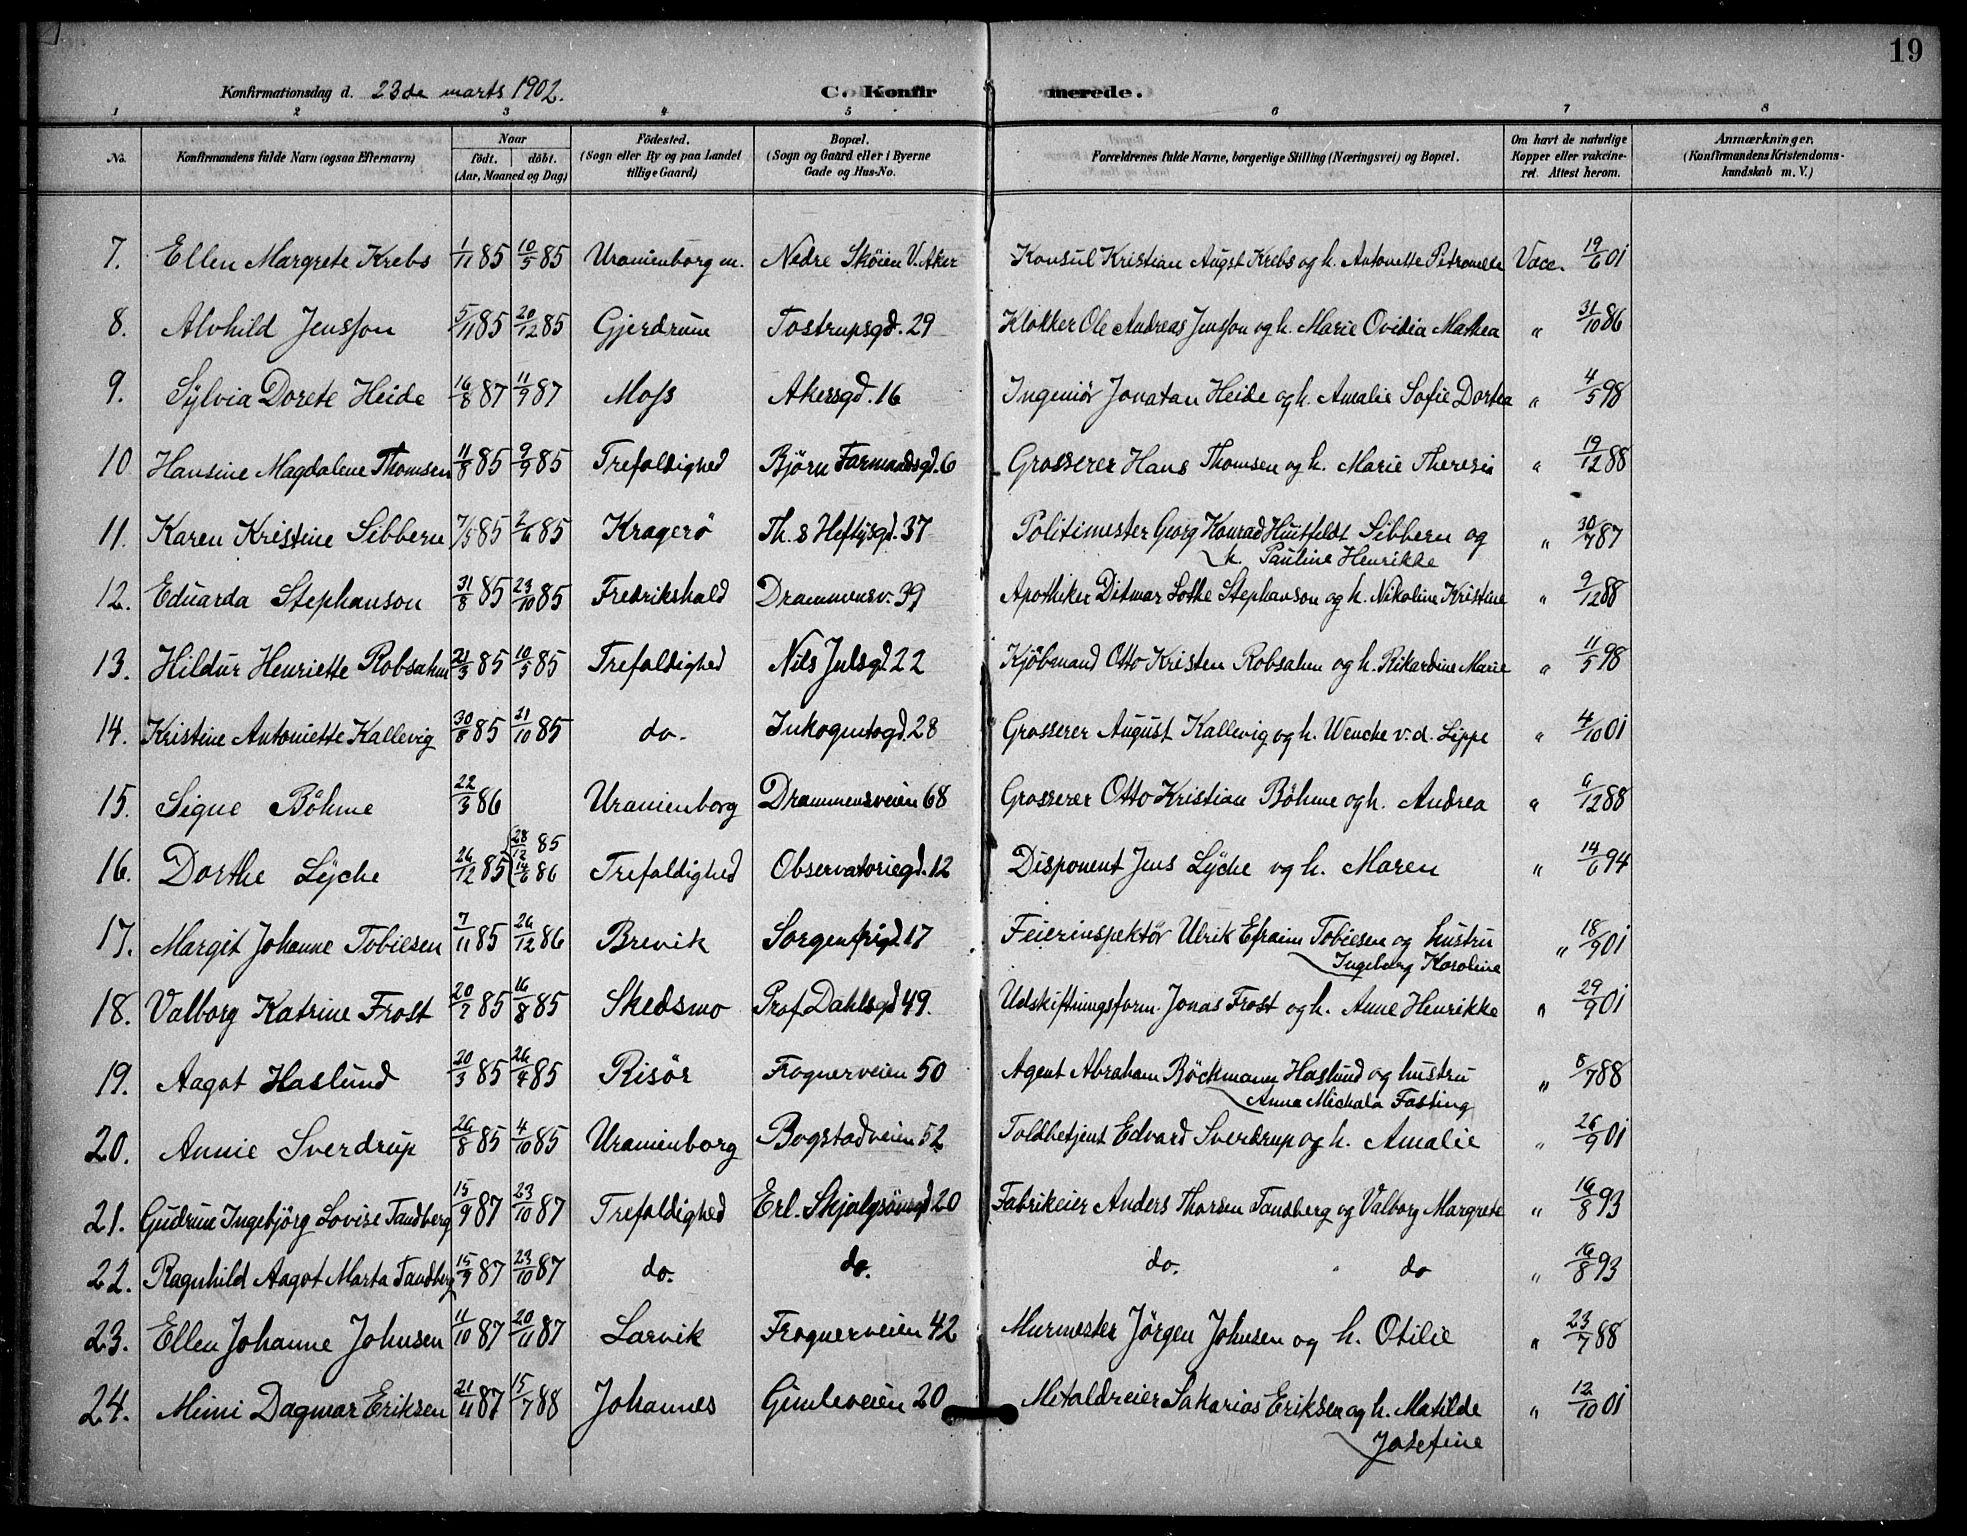 19
Konfirmationsdag d. 23de marts 1902. C. Konfirmerede.
1 2 3 4 5 6 7 8
No. Konfirmandens fulde Navn (ogsaa Efternavn) Naar födt. döbt. (Aar, Maaned og Dag) Födested. (Sogn eller By og paa Landet tillige Gaard) Bopæl. (Sogn og Gaard eller i Byerne Gade og Hus-No. Forældrenes fulde Navne, borgerlige Stilling (Næringsvei) og Bopæl. Om havt de naturlige Kopper eller vakcineret. Attest herom. Anmærkninger. (Konfirmandens Kristendomskundskab m. V.)
7. Ellen Margrete Krebs 1/11 85 10/5 85 Uranienborg m. Nedre Sköien V. Aker Konsul Kristian Augst Krebs og h. Antonette Petronelle Vacc. 19/6 01
8. Alvhild Jensson 5/11 85 20/12 85 Gjerdrum Tostrupsgd. 29 Klokker Ole Andreas Jensson og h. Marie Ovidia Mathea " 31/10 86
9. Sylvia Dorete Heide 16/8 87 11/9 87 Moss Akersgd. 16 Ingeniör Jonatan Heide og h. Amalie Sofie Dortea " 4/5 98
10 Hansine Magdalene Thomsen 11/8 85 9/9 85 Trefoldighed Björn Farmandsgd. 6 Grosserer Hans Thomsen og h. Marie Theresia " 19/12 88
11. Karen Kristine Sibbern 7/5 85 2/6 85 Kragerö Th. s Heftysgd. 37 Politimester Georg Konrad Huitfeldt Sibbern og " 30/7 87
h. Pauline Henrikke
12. Eduarda Stephanson 31/8 85 23/10 85 Fredrikshald Drammensv. 39 Apotheker Ditmar Lothe Stephanson og h. Nikoline Kristine " 9/12 88
13. Hildur Henriette Robsahm 21/3 85 10/5 85 Trefoldighed Nils Julsgd 22 Kjöbmand Otto Kristen Robsahm og h. Rikardine Marie " 11/5 98
14. Kristine Antoniette Kallevig 30/8 85 21/10 85 do. Inkogentogd. 28 Grosserer August Kallevig og h. Wencke v. d. Lippe " 4/10 01
15. Signe Böhme 22/3 86 Uranienborg Drammensveien 68 Grosserer Otto Kristian Böhme og h. Andrea " 6/12 88
16. Dorthe Lyche 26/12 85 28/12 85 14/6 86 Trefoldighed Observatoriegd. 12 Disponent Jens Lyche og h. Maren " 14/6 94
17. Margit Johanne Tobiesen 7/11 85 26/12 86 Brevik Sorgenfrigd. 17 Feierinspektör Ulrik Efraim Tobiesen og hustru " 18/9 01
Ingeborg Karoline
18. Valborg Katrine Frost 20/7 85 16/8 85 Skedsmo Prof Dahlsgd 49. Udskiftningsform. Jonas Frost og h. Anne Henrikke " 29/9 01
19. Aagot Haslund 20/3 85 26/4 85 Risör Frognerveien 50 Agent Abraham Böckmann Haslund og hustru " 8/7 88
Anna Michala Fasting
20. Annie Sverdrup 26/8 85 4/10 85 Uranienborg Bogstadveien 52 Toldbetjent Edvard Sverdrup og h. Amalie " 26/9 01
21. Gudrun Ingebjörg Lovise Tandberg 15/9 87 23/10 87 Trefoldighed Erl. Skjalgsönsgd 20 Fabrikeier Anders Thorsen Tandberg og Valborg Margrete " 16/8 93
22. Ragnhild Aagot Marta Tandberg 15/9 87 23/10 87 do. do. do. do " 16/8 93
23. Ellen Johanne Johnsen 11/10 87 20/11 87 Larvik Frognerveien 42 Murmester Jörgen Johnsen og h. Otilie " 23/7 88
24. Mimi Dagmar Eriksen 21/11 87 15/7 88 Johannes Gimleveien 20 Metaldreier Sakarias Eriksen og h. Matilde " 12/10 01
Josefine